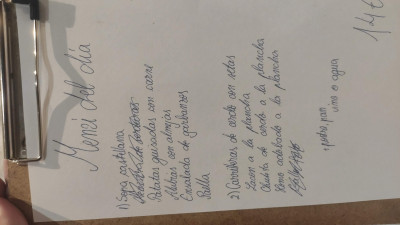 Menú del día
1) Sopa castellana
Patatas guisadas con carne
Alubias con almejas
Ensalada de garbanzos
Paella
2) Carrilleras de cerdo con setas
a la plancha
Chuleta de cerdo a la plancha
Lomo adobado a la plancha
+ postre, pan
vino o agua
14 €